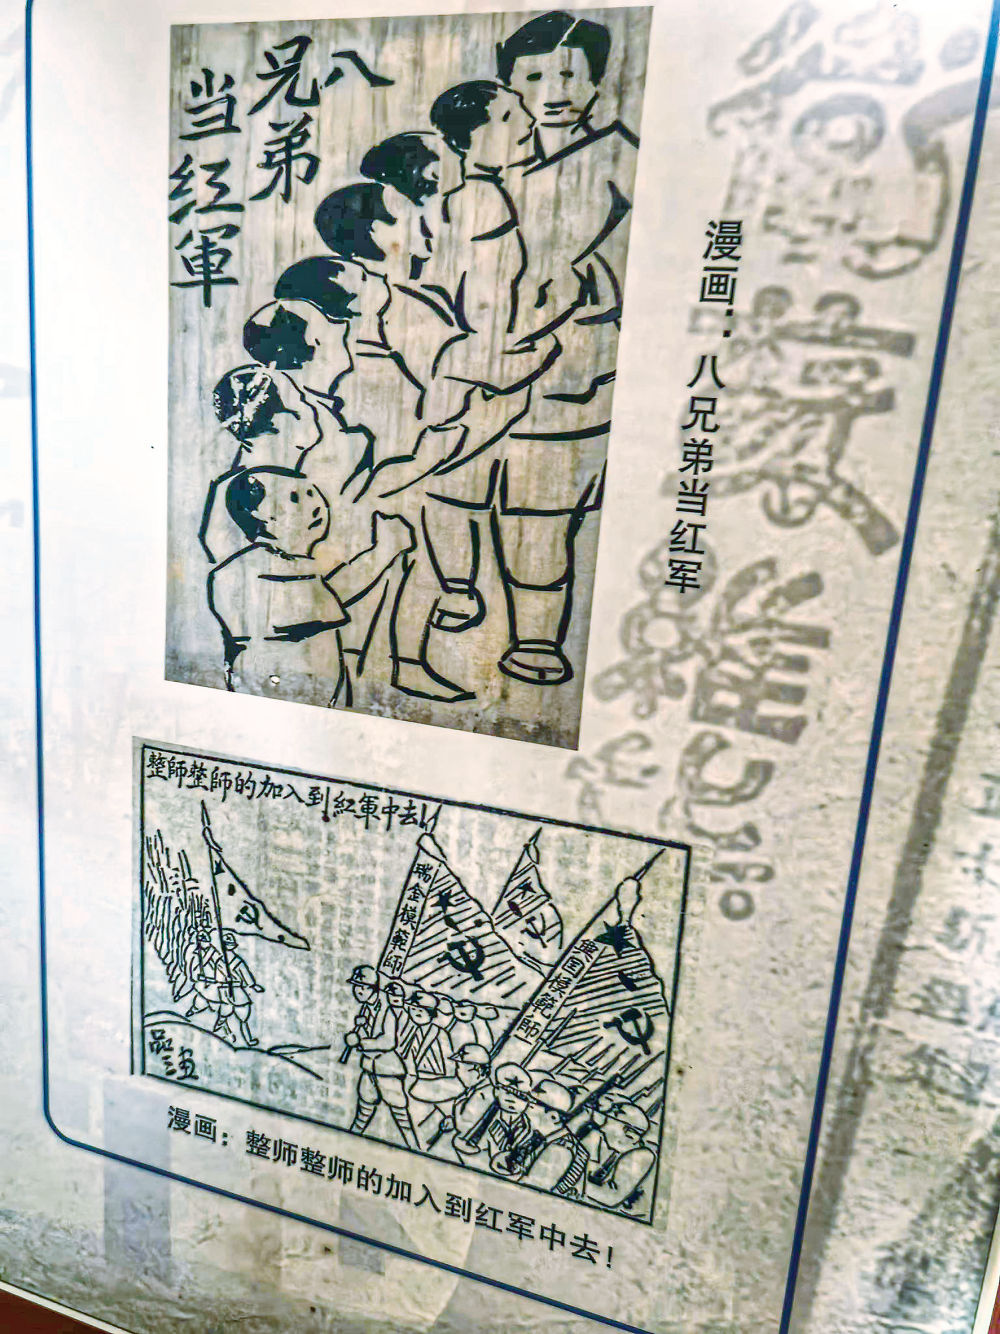 八
兄弟
当红軍
漫画：八兄弟当红军
整師整師的加入到紅軍中去!!
瑞金模範師
興国模範師
品三画
漫画：整师整师的加入到红军中去！